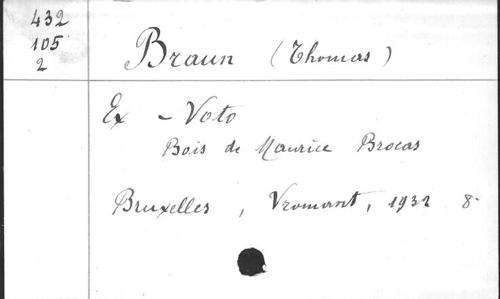 432
105
2
Braun (Thomas)
Ex - Voto
Bois de Maurice Brocas
Bruxelles, Vromant, 1932 8-